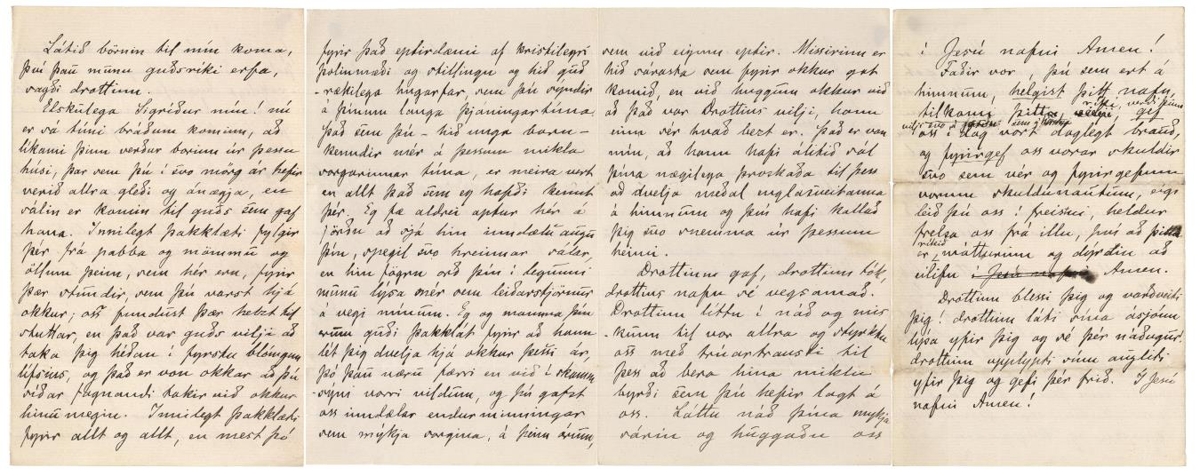 Látið börnin til mín koma,
því þau munu guðsríki erfa,
sagði drottinn.
Elskulega Sigríður mín! nú
er sá tími bráðum kominn, að
líkami þinn verður borinn úr þessu
húsi, þar sem þú í svo mörg ár hefir
verið allra gleði og ánægja, en
sálin er komin til guðs sem gaf
hana. Innilegt þakklæti fylgir
þér frá pabba og mömmu og
öllum þeim, sem hér eru, fyrir
þær stundir, sem þú varst hjá
okkur; oss fundust þær helzt til
stuttar, en það var guðs vilji að
taka þig héðan í fyrstu blómgun
lífsins, og það er von okkar að þú
síðar fagnandi takir við okkur
hinu megin. Innilegt þakklæti
fyrir allt og allt, en mest þó
fyrir það eptirdæmi af kristilegri
þolinmæði og stillingu og hið guð
-rækilega hugarfar, sem þú sýndir
á þínum langa þjáningartíma.
Það sem þú - hið unga barn -
kenndir mér á þessum mikla
sorgarinnar tíma, er meira vert
en allt það sem eg hafði kennt
þér. Eg fæ aldrei aptur hér á
jörðu að sjá hin inndælu augu
þín, spegil svo hreinnar sálar,
en hin fögru orð þín í legunni
munu lýsa mér sem leiðarstjörnur
á vegi mínum. Eg og mamma þín
erum guði þakklát fyrir að hann
lét þig dvelja hjá okkur þessi ár,
þó þau væru færri en við í skamm-
sýni vorri vildum, og þú gafst
oss inndælar endurminningar
sem mýkja sorgina, á þeim árum,
sem við eigum eptir. Missirinn er
hið sárasta sem fyrir okkur gat
komið, en við huggum okkur við
að það var Drottins vilji, hann
einn sér hvað bezt er. Það er von
mín, að hann hafi álitið sál
þína nægilega þroskaða til þess
að dvelja meðal englasveitanna
á himnum og því hafi kallað
þig svo snemma úr þessum
heimi.
Drottinn gaf, drottinn tók,
drottins nafn sé vegsamað.
Drottinn líttu í náð og mis
-kunn til vor allra og styrktu
oss með trúartrausti til
þess að bera hina miklu
byrði sem þú hefir lagt á
oss. Láttu náð þína mýkja
sárin og huggaðu oss
í Jesú nafni Amen!
Faðir vor, þú sem ert á
himnum, helgist þitt nafn,
tilkomi þitt ríki, verði þinn
vilji svo á jörðu sem á himni, gef
oss í dag vort daglegt brauð,
og fyrirgef oss vorar skuldir
svo sem vér og fyrirgefum
vorum skuldunautum, eigi
leið þú oss í freistni, heldur
frelsa oss frá illu, því að þitt
er ríkið, mátturinn og dýrðin að
eilífu í Jesú nafni Amen.
Drottinn blessi þig og varðveiti
þig! drottinn láti sína ásjónu
lýsa yfir þig og sé þér náðugur.
drottinn upplypti sínu augliti
yfir þig og gefi þér frið. Í Jesú
nafni Amen!